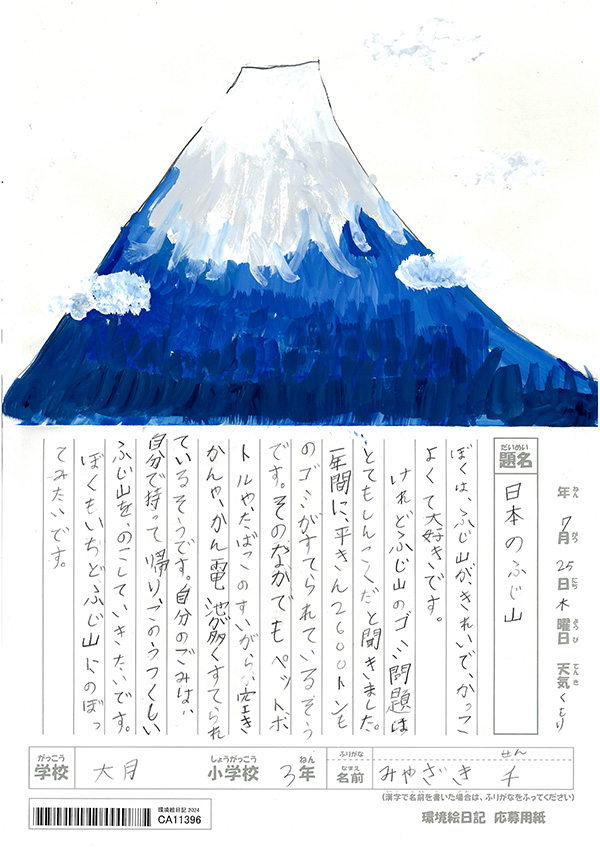 年 7月 25日 木曜日 天気 くもり
ねん がつ にち ようび てんき
だいめい
題名
日本のふじ山
ぼくは、ふじ山がきれいで、かっこ
よくて大好きです。
けれどふじ山のゴミ問題は
とてもしんこくだと聞きました。
一年間に、平きん2600トンも
のゴミがすてられているそう
です。そのなかでもペットボ
トルや、たばこのすいがら、空き
かんや、かん電池が多くすてられ
ているそうです。自分のごみは、
自分で持って帰り、このうつくしい
ふじ山を、のこしていきたいです。
ぼくもいちど、ふじ山にのぼっ
てみたいです。
がっこう しょうがっこう ねん ふりがな せん
学校 大月 小学校 3年 なまえ 名前 みやざき 千
(漢字で名前を書いた場合は、ふりがなをふってください)
環境絵日記 2024
CA11396
環境絵日記 応募用紙